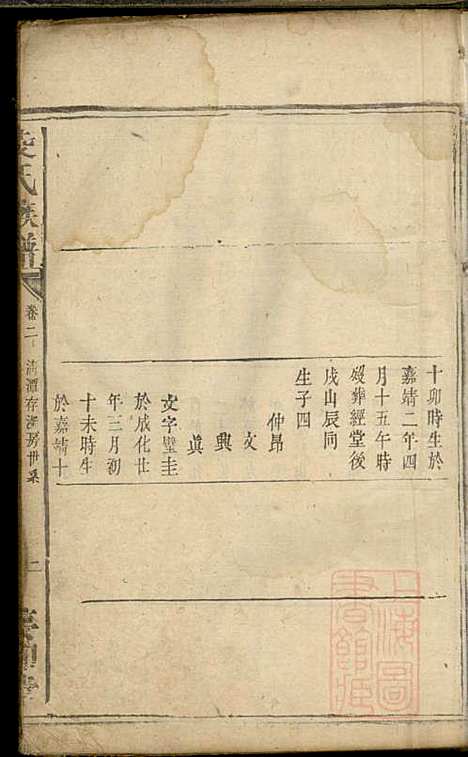 十卯時生於
嘉靖二年四
月十五午時
歿葬經堂後
戌山辰同
生子四
仲昂
文
興
真
文字璧圭
於成化廿
年三月初
十未時生
於嘉靖十
氏族譜
卷二
清潭存 房世系
上海圖
書館藏